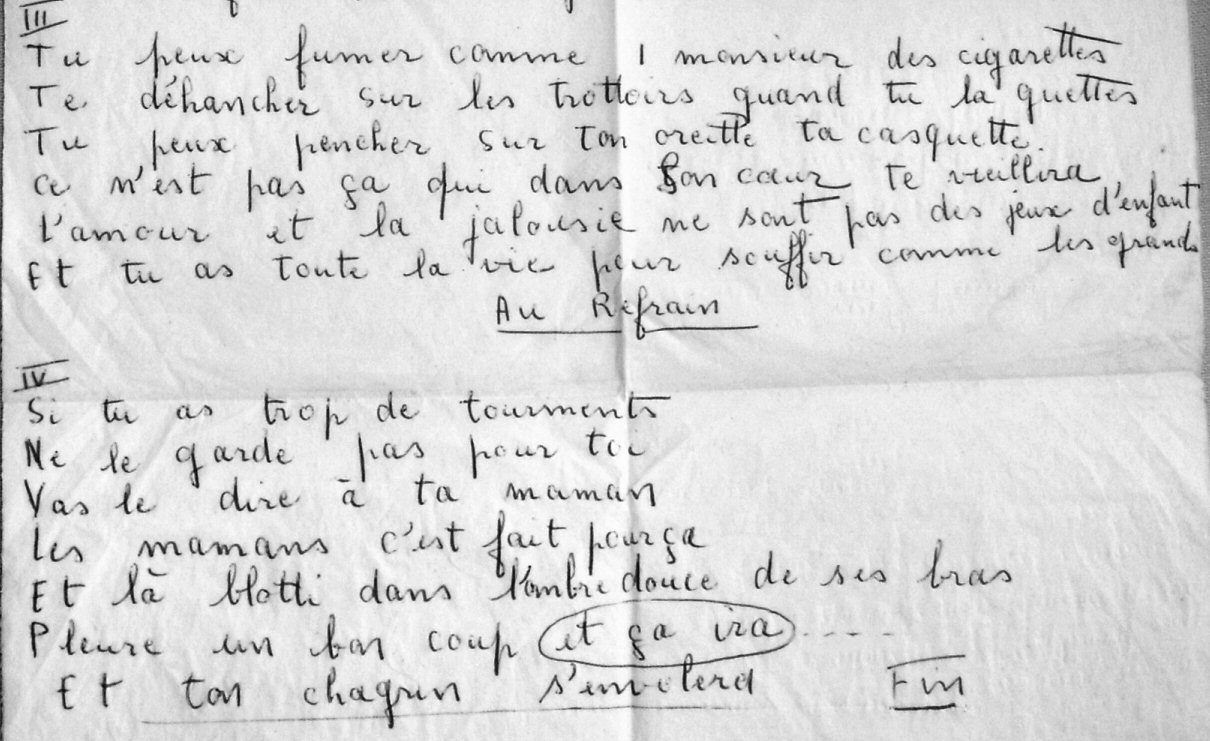 III
Tu peux fumer comme 1 monsieur des cigarettes
Te déhancher sur les trottoirs quand tu la quettes
Tu peux pencher sur ton oreille ta casquette.
Ce n'est pas ça qui dans son cœur te vieillira
L'amour et la jalousie ne sont pas des jeux d'enfant
Et tu as toute la vie pour souffir comme les grands
Au Refrain
IV
Si tu as trop de tourments
Ne le garde pas pour toi
Vas le dire à ta maman
Les mamans c'est fait pour ça
Et là blotti dans l'ombre douce de ses bras
Pleure un bon coup et ça ira .....
Et ton chagrin s'envolera Fin